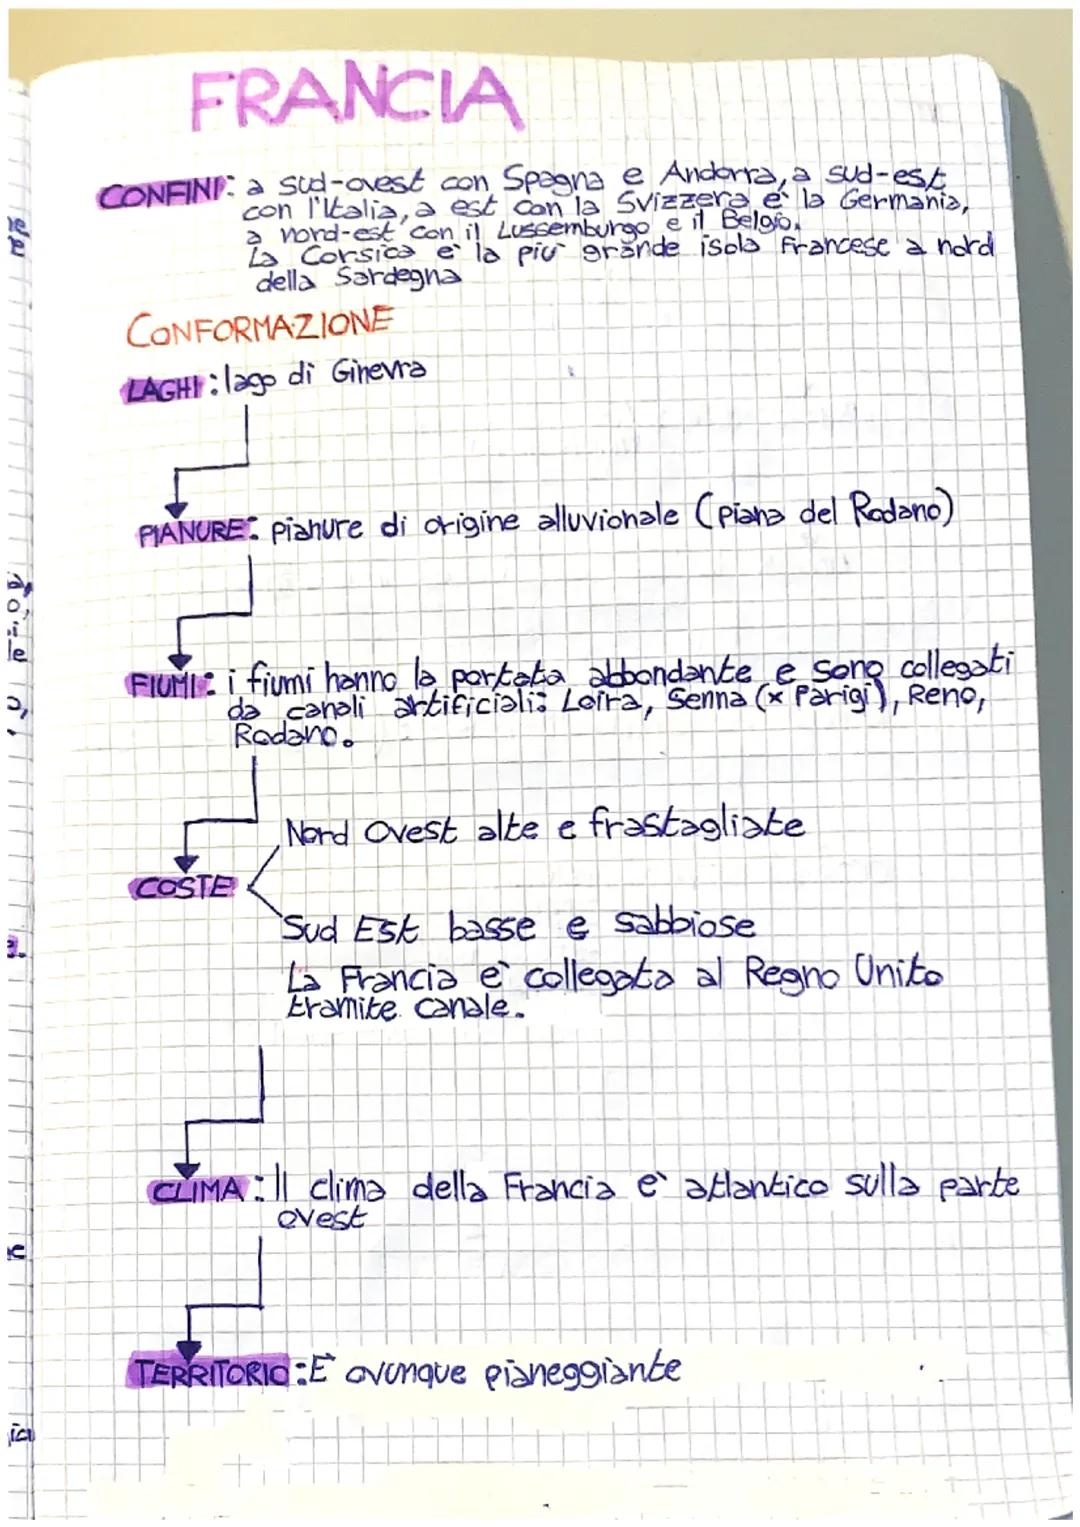 FRANCIA
CONFINI: a sud-ovest con Spagna e Andorra, a sud-est
con l'Italia, a est con la Svizzera e la Germania,
a nord-est con il Lussemburgo e il Belgio.
La Corsica e' la più grande isola francese a nord
della Sardegna
CONFORMAZIONE
LAGHI: lago di Ginevra
PIANURE: pianure di origine alluvionale (piana del Rodano)
FIUMI: i fiumi hanno la portata abbondante e sono collegati
da canali artificiali: Loira, Senna (x Parigi), Reno,
Rodano.
Nord Ovest alte e frastagliate
COSTE
Sud Est basse e sabbiose
La Francia e' collegata al Regno Unito
tramite canale.
CLIMA: Il clima della Francia e' atlantico sulla parte
ovest
TERRITORIO: E' ovunque pianeggiante